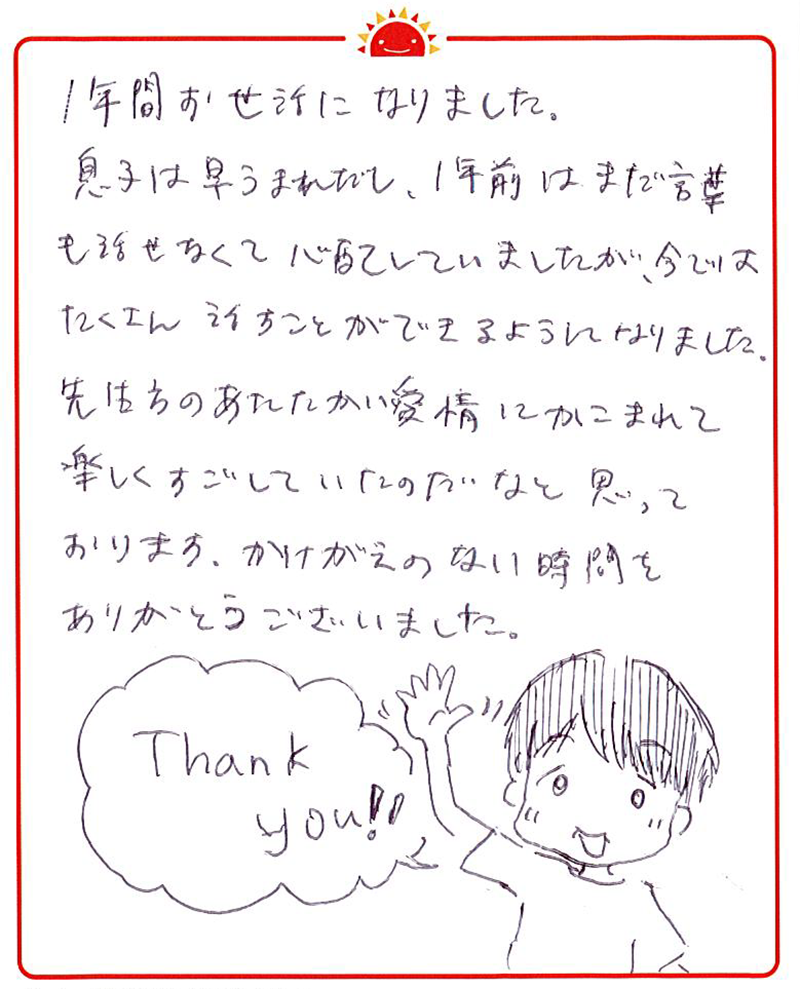 1年間お世話になりました。
息子は早うまれだし、1年前はまだ言葉
も話せなくて心配していましたが、今では
たくさん話すことができるようになりました。
先生方のあたたかい愛情にかこまれて
楽しくすごしていたのだなと思って
おります。かけがえのない時間を
ありがとうございました。
Thank
you!!